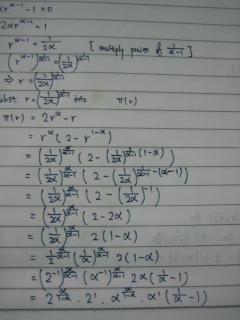 αr^(α-1) - 1 = 0
2αr^(α-1) = 1
r^(α-1) = 1/2α [ multiply power of 1/(α-1) ]
(r^(α-1))^(1/(α-1)) = (1/2α)^(1/(α-1))
⇒ r = (1/2α)^(1/(α-1))
subst r = (1/2α)^(1/(α-1)) into π(r)
π(r) = 2r^α - r
= r^α (2 - r^(1-α))
= (1/2α)^(α/(α-1)) (2 - (1/2α)^(1/(α-1) (1-α)))
= (1/2α)^(α/(α-1)) (2 - (1/2α)^(1/(α-1) · -(α-1)))
= (1/2α)^(α/(α-1)) (2 - (1/2α)^(-1))
= (1/2α)^(α/(α-1)) (2 - 2α)
= (1/2α)^(α/(α-1)) 2(1-α)
= 1/2^(α/(α-1)) (1/α)^(α/(α-1)) 2(1-α)
= (2^(-1))^(α/(α-1)) (α^(-1))^(α/(α-1)) 2α(1/α - 1)
= 2^(α/(1-α)) · 2^1 · α^(α/(1-α)) · α^1 (1/α - 1)